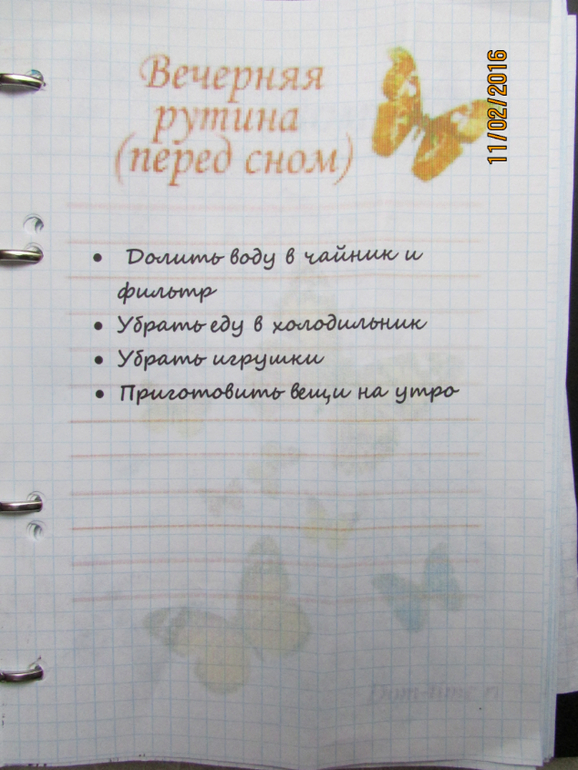 Вечерняя
рутина
(перед сном)
11/02/2016
• Долить воду в чайник и
фильтр
• Убрать еду в холодильник
• Убрать игрушки
• Приготовить вещи на утро